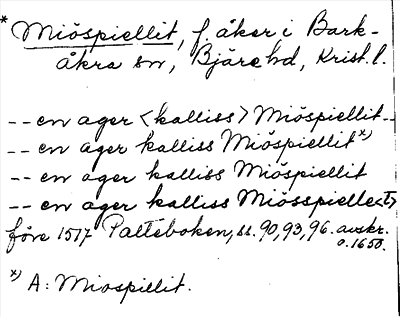 * Miöspiellit, f. åker i Bark-
åkra sn, Bjäre hd, Krist. l.
-- en ager <kalliss> Miöspiellit --
-- en ager kalliss Miöspiellit x)
-- en ager kalliss Miöspiellit
-- en ager kalliss Miösspielle<t>
före 1517 Palteboken, ss. 90, 93, 96. avskr.
o. 1650.
x) A: Miospillit.